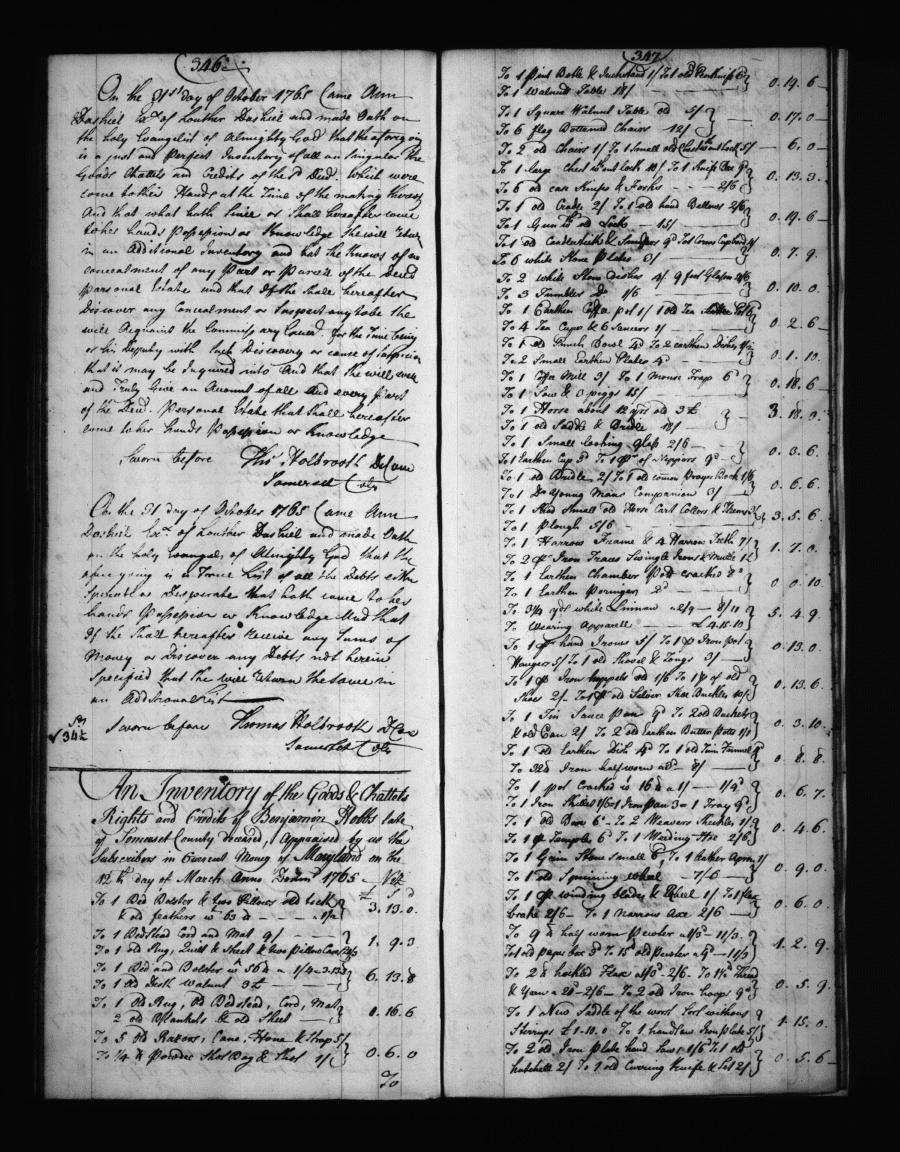 346
On the 31st day of October 1765 Came Ann
Dashiel Exx. of Louther Dashiel and made Oath on
the holy Evangelist of Almighty God that the aforegoing
is a just and Perfect Inventory of all an Singular the
Goods Chattels and Credits of the sd Decd. Which were
come to their Hands at the Time of the making thereof
And that what hath Since or Shall hereafter come
to her hands Possession or Knowledge She will return
in an Additional Inventory and that she Knows of no
concealment of any Part or Parcel of the Decd
personal Estate and that If she Shall hereafter
Discover any Concealment or Suspect any to be she
will Acquaint the Commissary General for the Time being
or his Deputy with Such Discovery or cause of Suspicion
that it may be Inquired into And that she will well
and Truly Give an Account of all And every Part
of the Decd. Personal Estate that Shall hereafter
come to her hands Possession or Knowledge
Sworn before Thos. Holbrook D Com
Somerset Coty
On the 31 day of October 1765 Came Ann
Dashiel Exx. of Louther Dashiel and made Oath
on the holy Evangels of Almighty God that the
aforegoing is a True List of all the Debts either
Sperate or Desperate that hath come to her
hands Possession or Knowledge And that
If she Shall hereafter receive any Sums of
Money or Discover any Debts not herein
Specified that she will Return the same in
an Additional List
Sworn before Thomas Holbrook D Com
Somerset Coty
34
An Inventory of the Goods & Chattels
Rights and Credits of Benjamin late
of Somerset County deceased, Appraised by us the
Subscribers in Current Money of Maryland on the
12th day of March Anno Domini 1765 Vizt
£ S d
To 1 Bed Bolster & two Pillows old tick
& old feathers wt 63 lb a 1/2 } 3. 13. 0
To 1 Bedstead Cord and Mat 9/
To 1 old Rug, Quilt & Sheet & two pillow Cases } 1. 9. 3
To 1 Bed and Bolster wt 56 lb a 1/4 = 3.13.8
To 1 old Desk walnut 3£ } 6. 13. 8
To 1 Old Rug, old Bedstead, Cord, Mat,
2 old Blankets & old Sheet } 0. 16. 6
To 5 old Razors, Case, Hone & Strop 5/
To 1/4 lb Powder Shot Bag & Shot 1/ } 0. 6. 0
To
347
To 1 pint Botle & Inckstand 1/ To 1 old Penknife 6d
To 1 Walnut Table 18/ } 0. 19. 6
To 1 Square Walnut Table old 5/
To 6 flag Bottamed Chairs 12/ } 0. 17. 0
To 2 old Chairs 1/ To 1 Small old Chest wt out Lock 5/ 6. 0
To 1 large Chest wt out Lock 10/ To 1 Knife Box 9d
To 6 old case Knifes & Forks 2/6 } 0. 13. 3
To 1 old Cradle 2/ To 1 old hand Bellows 2/6
To 1 Gun wth old Lock 15/ } 0. 19. 6
To 1 old Candlestick & Snuffers 9d
To 6 white Stone Plates 3/ } 0. 7. 9
To 2 white Stone Dishes 4/
To 3 Tumblers Do 1/6 } 0. 10. 0
To 1 Earthen Coffee pot 1/ 1 old Tea
To 4 Tea Cups & 6 Saucers 1/ } 0. 2. 6
To 1 old Punch Bowl 4d To 2 earthen Dishes
To 2 Small Earthen Plates 4d } 0. 1. 10
To 1 Coffee Mill 3/ To 1 Mouse Trap 6d
To 1 Sow & 3 piggs 15/ } 0. 18. 6
To 1 Horse about 12 yrs old 3£
To 1 old Saddle & Bridle 18/ } 3. 18. 0
To 1 Small looking Glass 2/6
To 1 Earthen Cup 3d To 1 pr of Nippers 9d } 0. 3. 6
To 1 old Bridle 2/ To 1 old comon Prayer Book 1/6
To 1 Do Young Mans Companion 3/ } 0. 6. 6
To 1 Small old Horse Cart Collers & Heams
To 1 plough 5/6 } 3. 5. 6
To 1 Harrow Frame & 4 Harrow Teeth 7/
To 2 pr Iron Traces Swingle Irons & 1£ } 1. 7. 0
To 1 Earthen Chamber Pott cracked 8d
To 1 Earthen Poringer 2d } 0. 0. 10
To 3 3/4 yds white Linnon a 2/9 8/10
To Wearing Apparell £4.15.10 } 5. 4. 9
To 1 pr hand Irons 5/ To 1 pr Iron pot
Hangers 5/ To 1 old Shovel & Tongs 3/ } 0. 13. 0
To 1 pr Iron old 1/6 To 1 pr of old
Shoe 2/ To 1 pr old Silver Shoe Buckles 10/ } 0. 13. 6
To 1 Tin Sauce pan 9d To 2 old Buckets
& old Can 2/ To 2 old Earthen Butter Potts 1/1 } 0. 3. 10
To 1 old Earthen Dish 4d To 1 old Tinn Funnel
To 32 lb Iron half worn a 3d 8/ } 0. 8. 8
To 1 pot Cracked wt 16 lb a 1/4d
To 1 Iron Skillet 1/6 1 Iron pan 3= 1 Tray 9d } 0. 6. 7
To 1 old Box 6d To 2 Weavers Shickles 1/9
To 1 pr Temples 6d To 1 Weeding Hoe 2/6 } 0. 4. 6
To 1 Grin Stone Small 6d To 1 leather Apron 1/
To 1 old Spinning wheel 7/6 } 0. 9. 0
To 1 pr winding blades & Wheel 1/ To 1 flax
brake 2/6 To 1 Narrow Axe 2/6 } 0. 6. 0
To 9 lb half worn Pewter a 1/3 = 11/3
To 1 old paper box 3d To 15 lb old Pewter a 9d = 11/3 } 1. 2. 9
To 2 lb hackled Flax a 1/3 = 2/6 Thread
& Yarn a 20d = 2/6 To 2 old Iron hoops 9d } 0. 5. 9
To 1 New Saddle of the worst Sort without
Sterrups £1.10.0 To 1 hand Saw Iron plate 5/ } 1. 15. 0
To 2 old Iron plate hand Saws 1/6 To 1 old
hatchell 2/ To 1 old Curring Knife & Set 2/ } 0. 5. 6